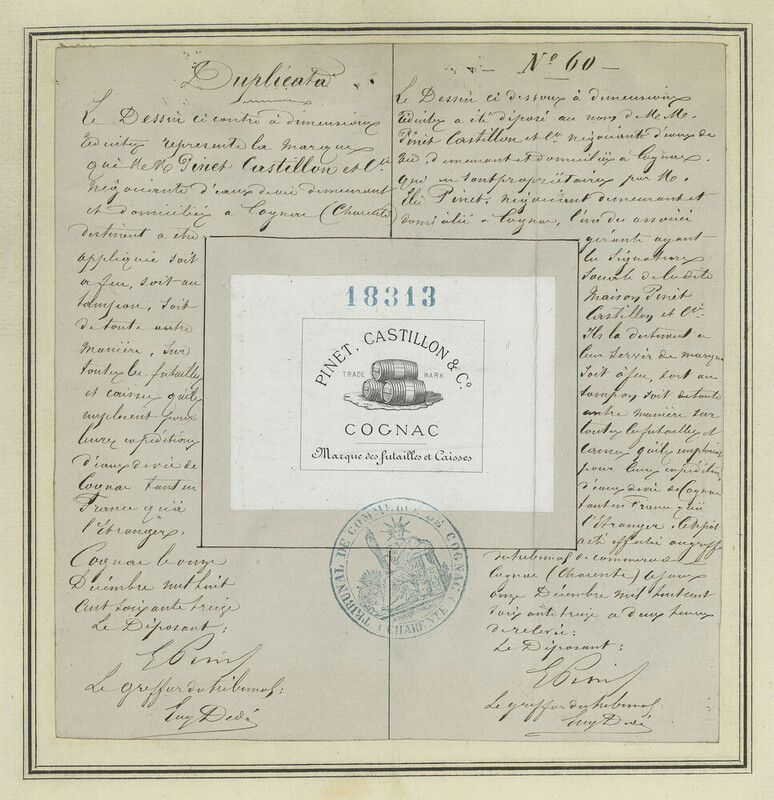 Duplicata
Le Dessin ci contre à dimensions
réduites représente la marque
que MM Pinet Castillon et Cie
négociants d'eaux de vie demeurant
et domiciliés à Cognac (Charente)
destinent a être
appliquée soit
a feu, soit au
tampon, soit
de toute autre
manière, sur
toutes les futailles
et caisses qu'ils
emploient pour
leurs expéditions
d'eaux de vie de
Cognac tant en
France qu'à
l'étranger.
Cognac le onze
Décembre mil huit
cent soixante treize
Le Déposant:
E Pinet
Le greffier du tribunal:
Dédé
No 60
Le Dessin ci dessous à dimensions
réduites a été déposé au nom de MM.
Pinet Castillon et Cie négociants d'eaux de
vie demeurant et domiciliés à Cognac.
qui en sont propriétaires par M.
Elie Pinet, négociant demeurant et
domicilié à Cognac, l'un des associés
gérants ayant
la signature
sociale de la dite
Maison Pinet
Castillon et Cie.
Ils la destinent a
leur servir de marque
soit à feu, soit au
tampon soit de toute
autre manière sur
toutes les futailles et
caisses qu'ils emploient
pour leurs expéditions
d'eaux de vie de Cognac
tant en France qu'à
l'étranger. Le dépôt
a été effectué au greffe
du tribunal de commerce de
Cognac (Charente) le jour
onze Décembre mil huit cent
soixante treize a deux heures
de relevée:
Le Déposant:
E Pinet
Le greffier du tribunal
Dédé
18313
PINET, CASTILLON & Co
TRADE MARK
COGNAC
Marque des futailles et Caisses
TRIBUNAL DE COMMERCE DE COGNAC
(CHARENTE)